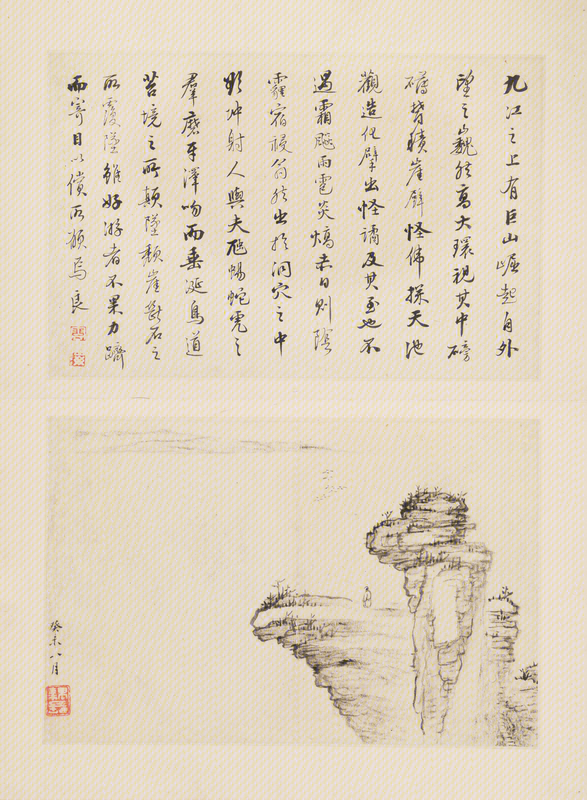 九江之上有巨山崛起自外
望之巍然高大環視其中磅
礴皆積崖壁怪偉探天地
觀造化擘出怪譎及其至也不
遇霜飈雨雹炎熇赤日則陰
霾宿祲滃然出於洞穴之中
冲射人與夫虺蜴蛇虎之
羣磨牙澤吻而垂涎鳥道
苔境之所顛墜頹崖斷石之
所覆墜雖好游者不果力躋
而寄目以償所願焉良
癸未八月